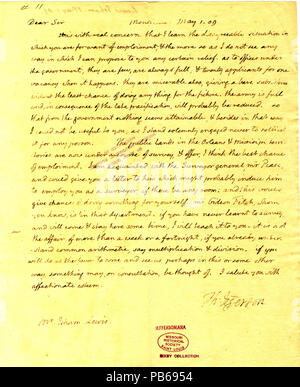 Dear Sir Monticello May 1. 09
It is with real concern that I learn the disagreeable situation in
which you are for want of employment, & the more so as I do not see any
way in which I can propose to you any certain relief. as to offices under
the government, they are few, are always full, & twenty applicants for one
vacancy when it happens. they are miserable also, giving a bare subsis-
without the least chance of doing anything for the future. the army is full
and, in consequence of the late pacification, will probably be reduced. so
that from the government nothing seems attainable. & besides in that way
I could not be useful to you, as I stand solemnly engaged never to solicit
it for any person. the public lands in the Orleans & Missisipi terri-
tories are now under a course of survey, & offer, I think the best chance
of employment. I am acquainted with the Surveyor general mr
and could give you a letter to him which might probably induce him
to employ you as a surveyor if there be any room; and this would
give chances of doing something for yourself. mr Gideon Fitch, whom
you know, is in that department. if you have never learnt to survey,
and will come & stay here some time, I will teach it to you. it is not
the affair of more than a week or a fortnight, if you already under-
stand common arithmetic, say multiplication & division. if you
will do me the favor to come and see me, perhaps in this or some other
way something may, on consultation, be thought of. I salute you with
affectionate esteem.
Th: Jefferson
mr. Isham Lewis
JEFFERSONIANA
MISSOURI
HISTORICAL
SOCIETY
SAINT LOUIS
BIXBY COLLECTION
alamy
Image ID: PB6954
www.alamy.com